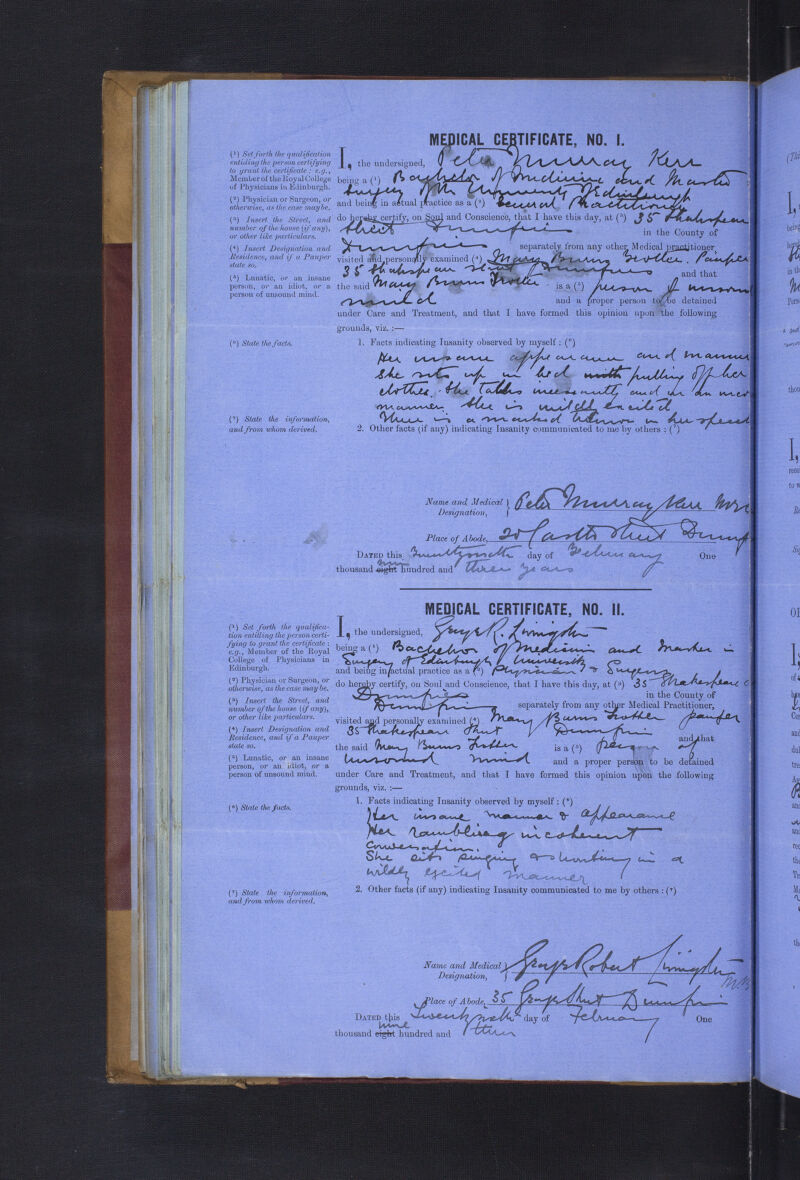 MEDICAL CERTIFICATE, NO. I.
(¹) Set forth the qualification
entitling the person certifying
to grant the certificate; e.g.,
Member of the Royal College
of Physicians in Edinburgh.
(²) Physician or Surgeon, or
otherwise, as the case may be.
(³) Insert the Street, and
number of the house (if any),
or other like particulars.
(⁴) Insert Designation and
Residence, and if a Pauper
state so.
(⁵) Lunatic, or an insane
person, or an idiot, or a
person of unsound mind.
I, the undersigned, Peter Murray Kerr
being a (¹) Bachelor of Medicine and Master
Surgery of the University of Edinburgh
and being in actual practice as a (²) General Practitioner
do hereby certify, on Soul and Conscience, that I have this day, at (³) 35 Shakspear
Street Dumfries in the County of
Dumfries separately from any other Medical practitioner,
visited and personally examined (⁴) Mary Burns Trotter. Pauper
35 Shakspear Street Dumfries and that
the said Mary Burns Trotter is a (⁵) person of unsound
mind and a proper person to be detained
under Care and Treatment, and that I have formed this opinion upon the following
grounds, viz. :—
(⁶) State the facts.
1. Facts indicating Insanity observed by myself : (⁶)
Her insane appearance and manner
She sits up in bed pulling off her
clothes. She talks incessantly and in an
manner. She is wildly excited
There is a marked tremor in her speech
(⁷) State the information,
and from whom derived.
2. Other facts (if any) indicating Insanity communicated to me by others : (⁷)
Name and Medical Designation, Peter Murray Kerr
Place of Abode, 20 Castle Street Dumf
DATED this Twentysixth day of February One
thousand eight nine hundred and three years
MEDICAL CERTIFICATE, NO. II.
(¹) Set forth the qualifica-
tion entitling the person certi-
fying to grant the certificate;
e.g., Member of the Royal
College of Physicians in
Edinburgh.
(²) Physician or Surgeon, or
otherwise, as the case may be.
(³) Insert the Street, and
number of the house (if any),
or other like particulars.
(⁴) Insert Designation and
Residence, and if a Pauper
state so.
(⁵) Lunatic, or an insane
person, or an idiot, or a
person of unsound mind.
I, the undersigned, George R. Livingston
being a (¹) Bachelor of Medicine and Master in
Surgery of Edinburgh University
and being in actual practice as a (²) Physician & Surgeon
do hereby certify, on Soul and Conscience, that I have this day, at (³) 35 Shakespeare
Dumfries in the County of
Dumfries separately from any other Medical Practitioner,
visited and personally examined (⁴) Mary Burns Trotter pauper
35 Shakespeare Street Dumfries and that
the said Mary Burns Trotter is a (⁵) person of
unsound mind and a proper person to be detained
under Care and Treatment, and that I have formed this opinion upon the following
grounds, viz. :—
(⁶) State the facts.
1. Facts indicating Insanity observed by myself : (⁶)
Her insane manner & appearance
Her rambling incoherent
conversation.
She sits singing & shouting in a
wildly excited manner
(⁷) State the information,
and from whom derived.
2. Other facts (if any) indicating Insanity communicated to me by others : (⁷)
Name and Medical Designation, George Robert Livingston
Place of Abode, 35 George Street Dumfries
DATED this Twenty sixth day of February One
thousand eight nine hundred and three